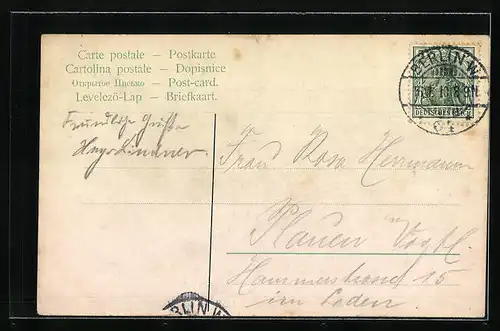 Carte postale – Postkarte
Cartolina postale – Dopisnice
Открытое Письмо – Post-card.
Levelező-Lap – Briefkaart.
BERLIN W
DEUTSCHES REICH
Freundliche Grüße
Frau Rosa Herrmann
Plauen Vogtl.
Hammerstrasse 15
im Laden.
BERLIN W